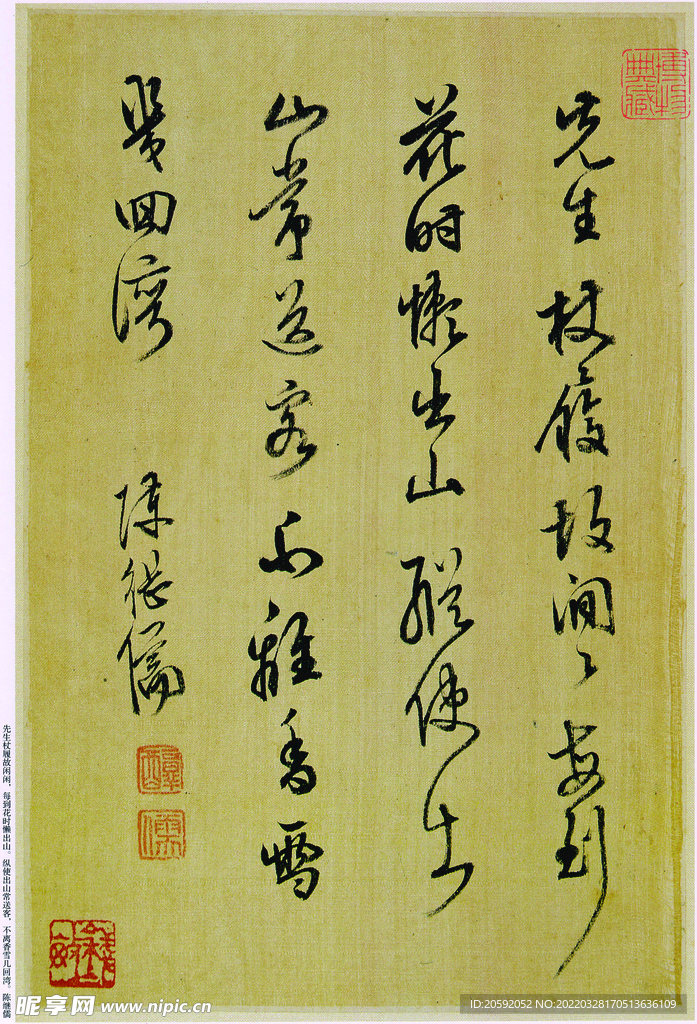 先生杖履故閒〻每到
花时懒出山縱使出
山常送客不離香雪
幾回灣
陳繼儒
博物典藏
醇儒
先生杖履故闲闲，每到花时懒出山。纵使出山常送客，不离香雪几回湾。陈继儒
昵享网 www.nipic.cn
ID:20592052 NO:20220328170513636109